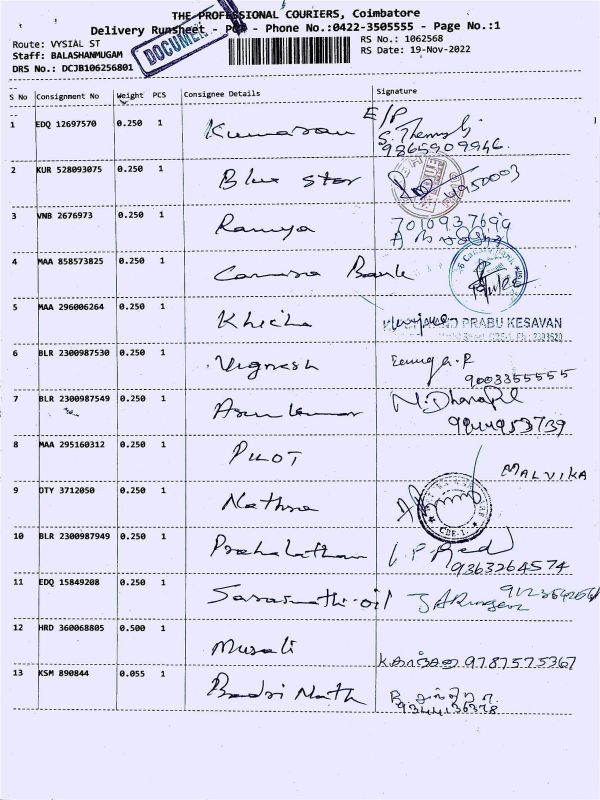 THE PROFESSIONAL COURIERS, Coimbatore
Delivery Runsheet - POT - Phone No.:0422-3505555 - Page No.:1
DOCUMEN
Route: VYSIAL ST
RS No.: 1062568
Staff: BALASHANMUGAM
RS Date: 19-Nov-2022
DRS No.: DCJB106256801
S No Consignment No Weight PCS Consignee Details Signature
1 EDQ 12697570 0.250 1 Kumaran E/P
9865909946.
2 KUR 528093075 0.250 1 Blue Star 4950003
3 VNB 2676973 0.250 1 Ramya
4 MAA 858573825 0.250 1 Canara Bank
5 MAA 296006264 0.250 1 PRABU KESAVAN
6 BLR 2300987530 0.250 1 Vignesh
9003355555
7 BLR 2300987549 0.250 1 Arun kumar N. Dhanapl
9944953739
8 MAA 295160312 0.250 1 PILOT MALVIKA
9 OTY 3712050 0.250 1 Nathra
CBE-1.
10 BLR 2300987949 0.250 1 Prahalathan
9363264574
11 EDQ 15849208 0.250 1 Saraswathi-oil
12 HRD 360068805 0.500 1 Murali
9787575367
13 KSM 890844 0.055 1 Badri Nath
9344136378